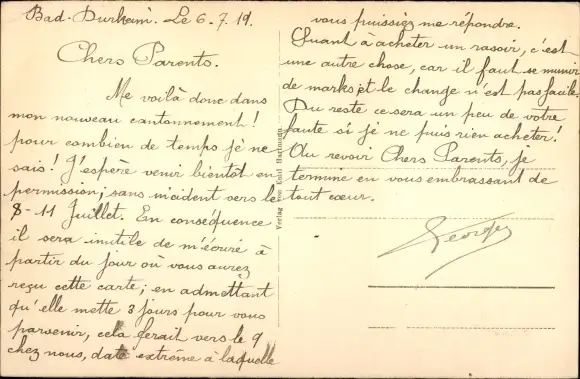 Bad-Durkeim. Le 6.7.19.
Chers Parents.
Me voilà donc dans
mon nouveau cantonnement!
pour combien de temps je ne
sais! J'espère venir bientôt en
permission; sans incident vers le
8-11 Juillet. En conséquence
il sera inutile de m'écrire à
partir du jour où vous aurez
reçu cette carte; en admettant
qu'elle mette 3 jours pour vous
parvenir, cela ferait vers le 9
chez nous, date extrême à laquelle
Verlag von
vous puissiez me répondre.
Quant à acheter un rasoir, c'est
une autre chose, car il faut se munir
de marks et le change n'est pas facile.
Du reste ce sera un peu de votre
faute si je ne puis rien acheter!
Au revoir Chers Parents, je
termine en vous embrassant de
tout cœur.
Georges